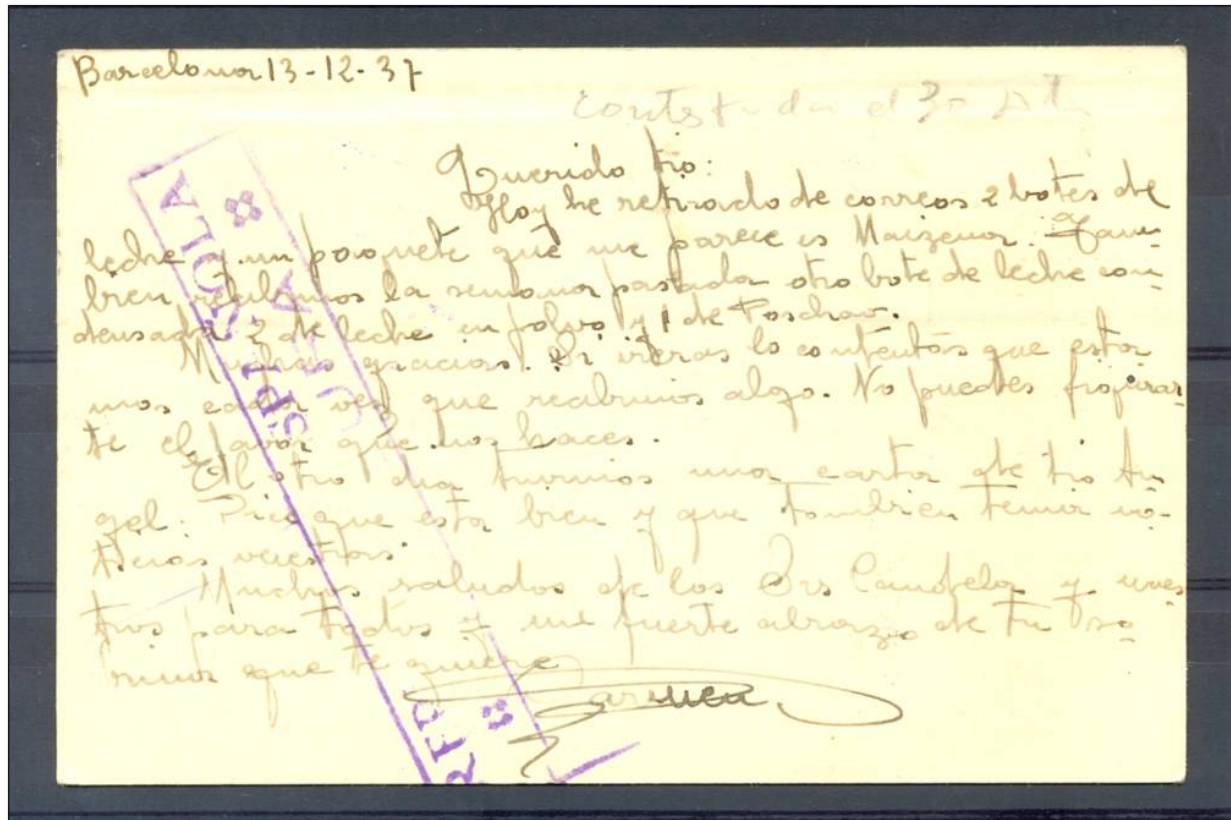 Barcelona 13-12-37
contestada el 30
Querido tio:
Hoy he retirado de correos 2 botes de
leche y un paquete que me parece es Maizena. Tam
bien recibimos la semana pasada otro bote de leche con
densada 2 de leche en polvo y 1 de
Muchas gracias. Si vieras lo contentas que esta
mos cada vez que recibimos algo. No puedes figurar
te el favor que nos haces.
El otro dia tuvimos una carta de tio An
gel. Dice que esta bien y que tambien tenia no
ticias vuestras.
Muchos saludos de los Srs Candela y nues
tros para todos y un fuerte abrazo de tu so
brina que te quiere
Carmen